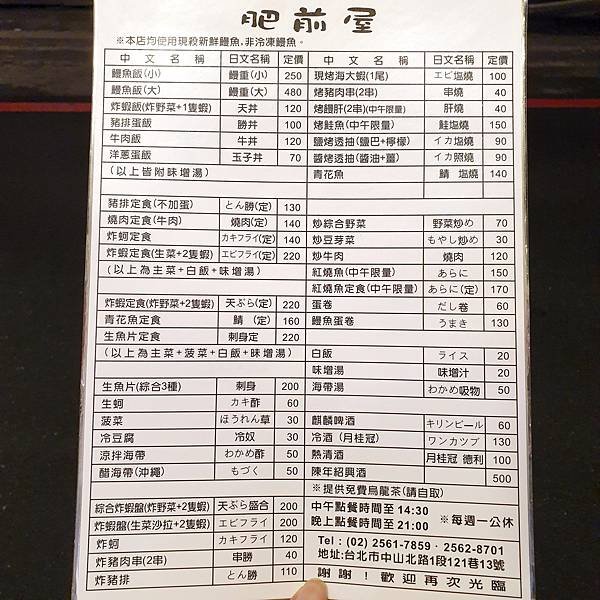 肥前屋
※本店均使用現殺新鮮鰻魚,非冷凍鰻魚。
中 文 名 稱 日文名稱 定價
鰻魚飯(小) 鰻重(小) 250
鰻魚飯(大) 鰻重(大) 480
炸蝦飯(炸野菜+1隻蝦) 天丼 120
豬排蛋飯 勝丼 100
牛肉飯 牛丼 120
洋蔥蛋飯 玉子丼 70
(以上皆附味增湯)
豬排定食(不加蛋) とん勝(定) 130
燒肉定食(牛肉) 燒肉(定) 140
炸蚵定食 カキフライ(定) 140
炸蝦定食(生菜+2隻蝦) エビフライ(定) 220
(以上為主菜+白飯+味增湯)
炸蝦定食(炸野菜+2隻蝦) 天ぷら(定) 220
青花魚定食 鯖 (定) 160
生魚片定食 刺身定 220
(以上為主菜+菠菜+白飯+味增湯)
生魚片(綜合3種) 刺身 200
生蚵 カキ酢 60
菠菜 ほうれん草 30
冷豆腐 冷奴 30
涼拌海帶 わかめ酢 50
醋海帶(沖繩) もづく 50
綜合炸蝦盤(炸野菜+2隻蝦) 天ぷら盛合 200
炸蝦盤(生菜沙拉+2隻蝦) エビフライ 200
炸蚵 カキフライ 120
炸豬肉串(2串) 串勝 40
炸豬排 とん勝 110
中 文 名 稱 日文名稱 定價
現烤海大蝦(1尾) エビ塩燒 100
烤豬肉串(2串) 串燒 40
烤鰻肝(2串)(中午限量) 肝燒 40
烤鮭魚(中午限量) 鮭塩燒 150
鹽烤透抽(鹽巴+檸檬) イカ塩燒 90
醬烤透抽(醬油+薑) イカ照燒 90
青花魚 鯖 塩燒 140
炒綜合野菜 野菜炒め 70
炒豆芽菜 もやし炒め 30
炒牛肉 燒肉 120
紅燒魚(中午限量) あらに 150
紅燒魚定食(中午限量) あらに(定) 170
蛋卷 だし卷 60
鰻魚蛋卷 うまき 130
白飯 ライス 20
味增湯 味增汁 20
海帶湯 わかめ吸物 50
麒麟啤酒 キリンビール 60
冷酒(月桂冠) ワンカップ 130
熱清酒 月桂冠 德利 100
陳年紹興酒 500
※提供免費烏龍茶(請自取)
中午點餐時間至 14:30
晚上點餐時間至 21:00 ※每週一公休
Tel:(02) 2561-7859・2562-8701
地址:台北市中山北路1段121巷13號
謝謝!歡迎再次光臨